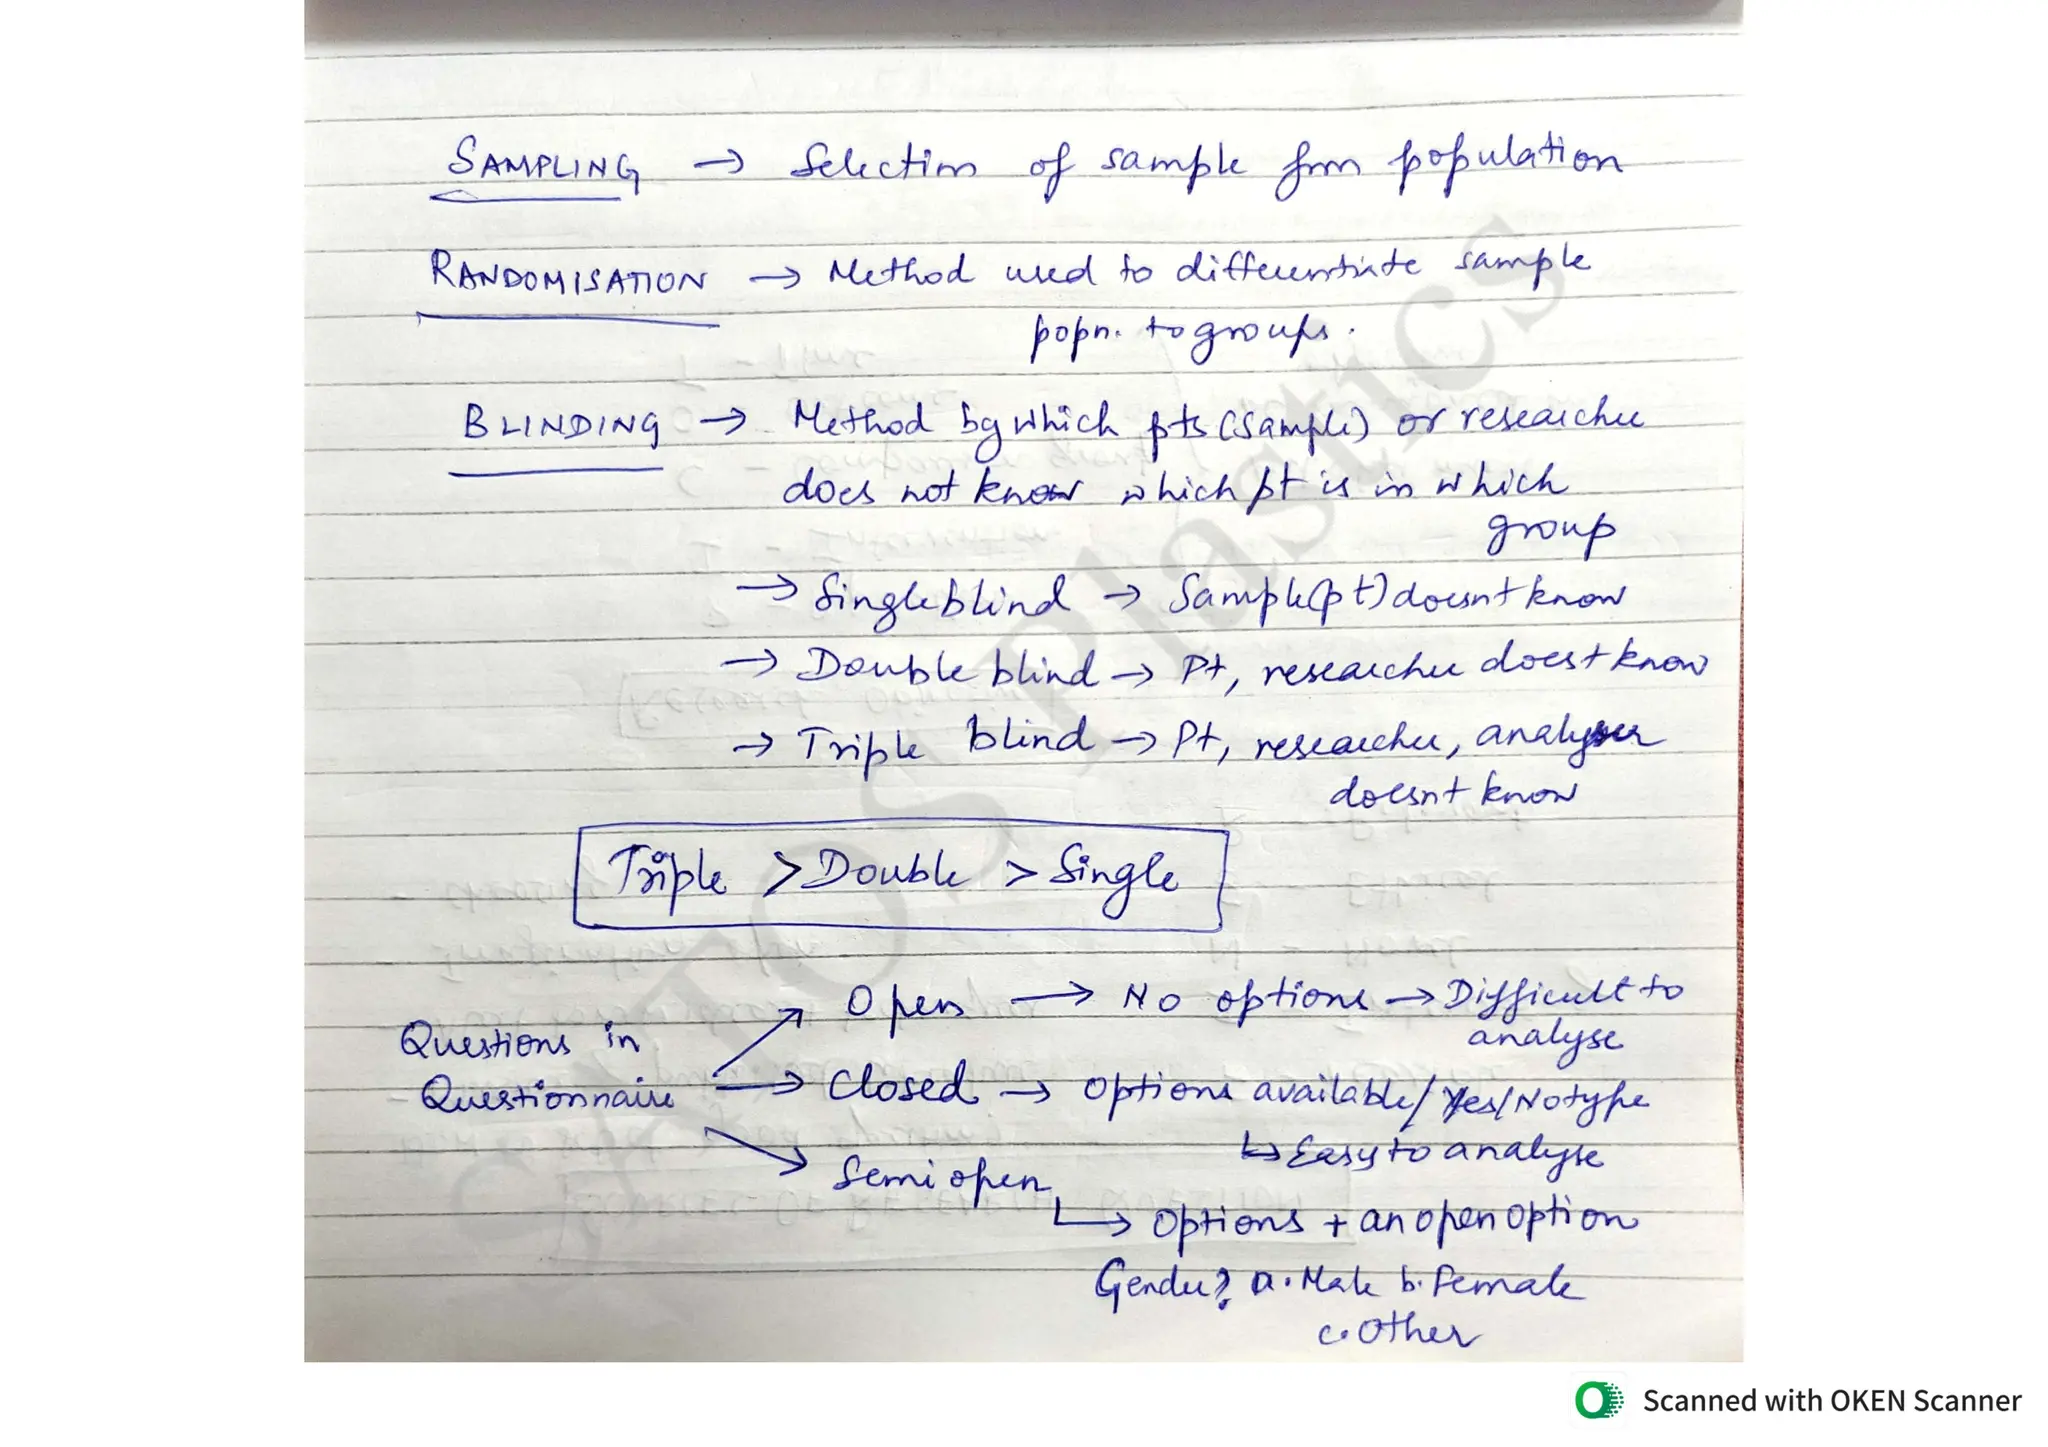 SAMPLING → Selection of sample from population
RANDOMISATION → Method used to differentiate sample
popn. to groups.
BLINDING → Method by which pts (sample) or researcher
does not know which pt is in which
group
→ Single blind → Sample (pt) doesnt know
→ Double blind → Pt, researcher doest know
→ Triple blind → Pt, researcher, analyser
doesnt know
Triple > Double > Single
Questions in
Questionnaire
Open → No options → Difficult to
analyse
→ Closed → Options available / Yes/No type
↳ Easy to analyse
Semi open
↳ Options + an open option
Gender? a. Male b. Female
c. Other
SATOS Plastics
Scanned with OKEN Scanner